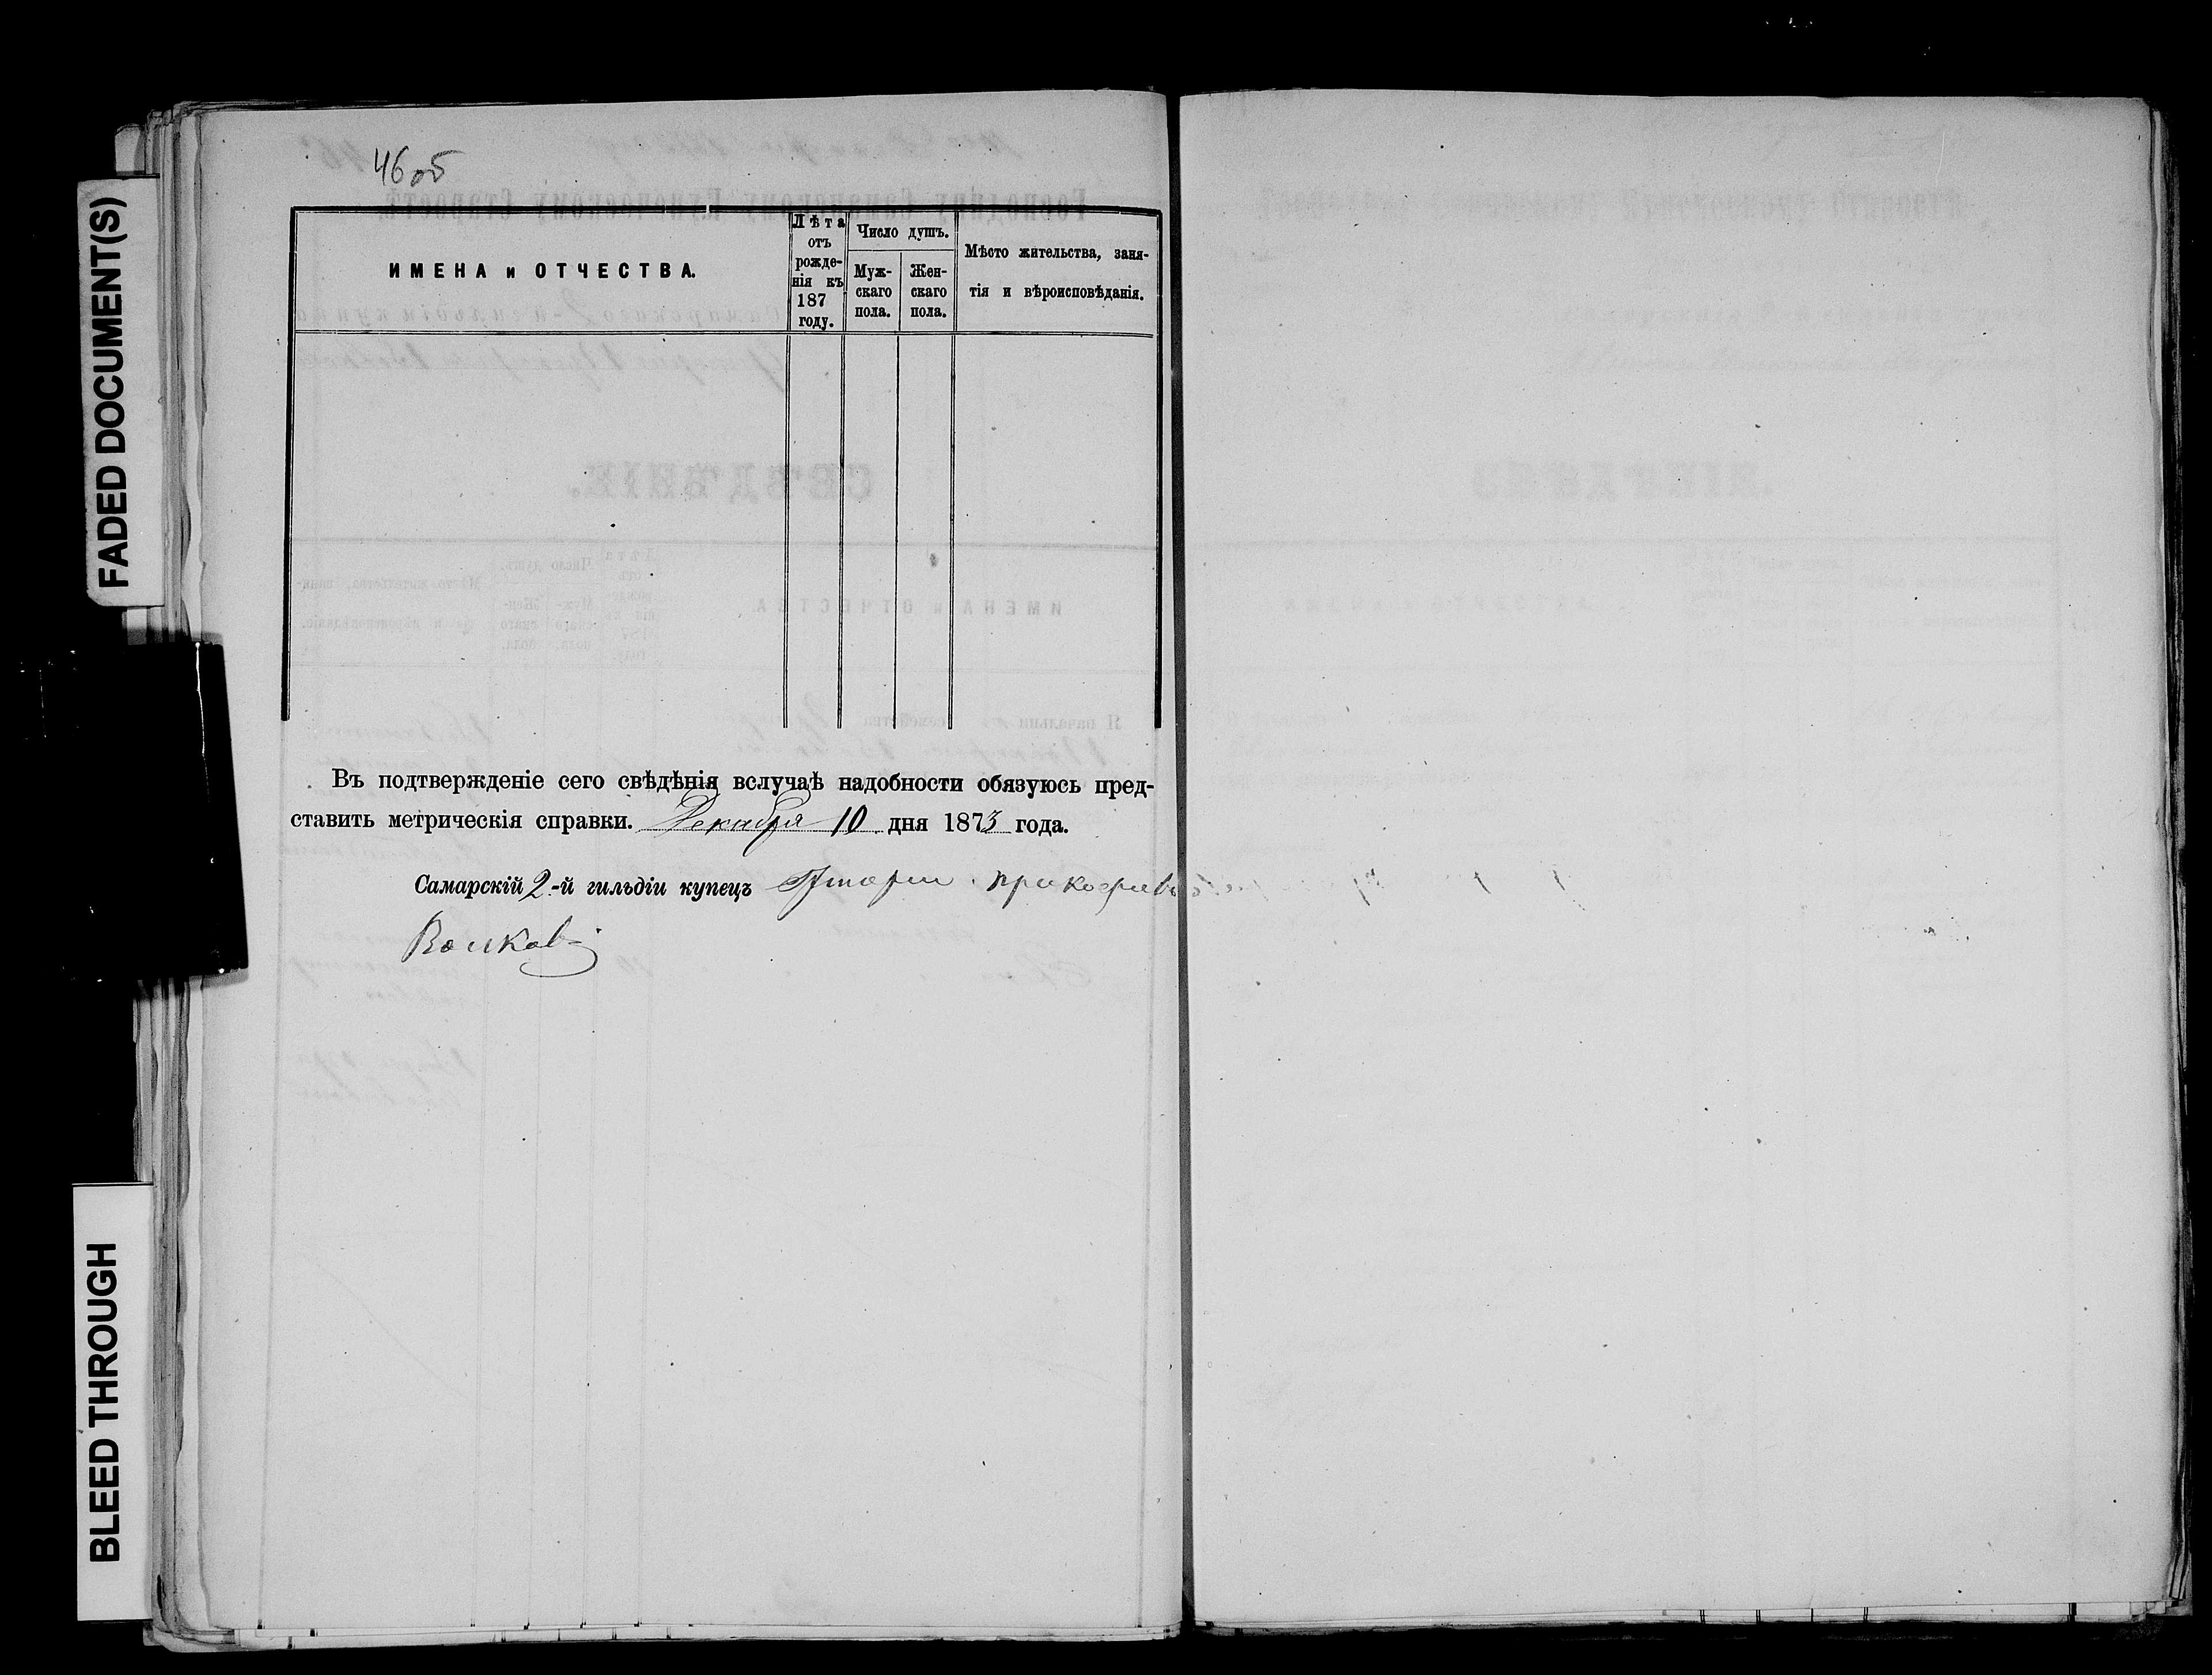 FADED DOCUMENT(S)
BLEED THROUGH
46об
ИМЕНА и ОТЧЕСТВА.
Лѣта
отъ
рожде-
нія къ
187
году.
Число душъ.
Муж-
скаго
пола.
Жен-
скаго
пола.
Мѣсто жительства, заня-
тія и вѣроисповѣданія.
Въ подтвержденіе сего свѣдѣнія вслучаѣ надобности обязуюсь пред-
ставить метрическія справки. Декабря 10 дня 1873 года.
Самарскій 2-й гильдіи купецъ
Волковъ
СВѢДѢНІЕ.
ИМЕНА и ОТЧЕСТВА